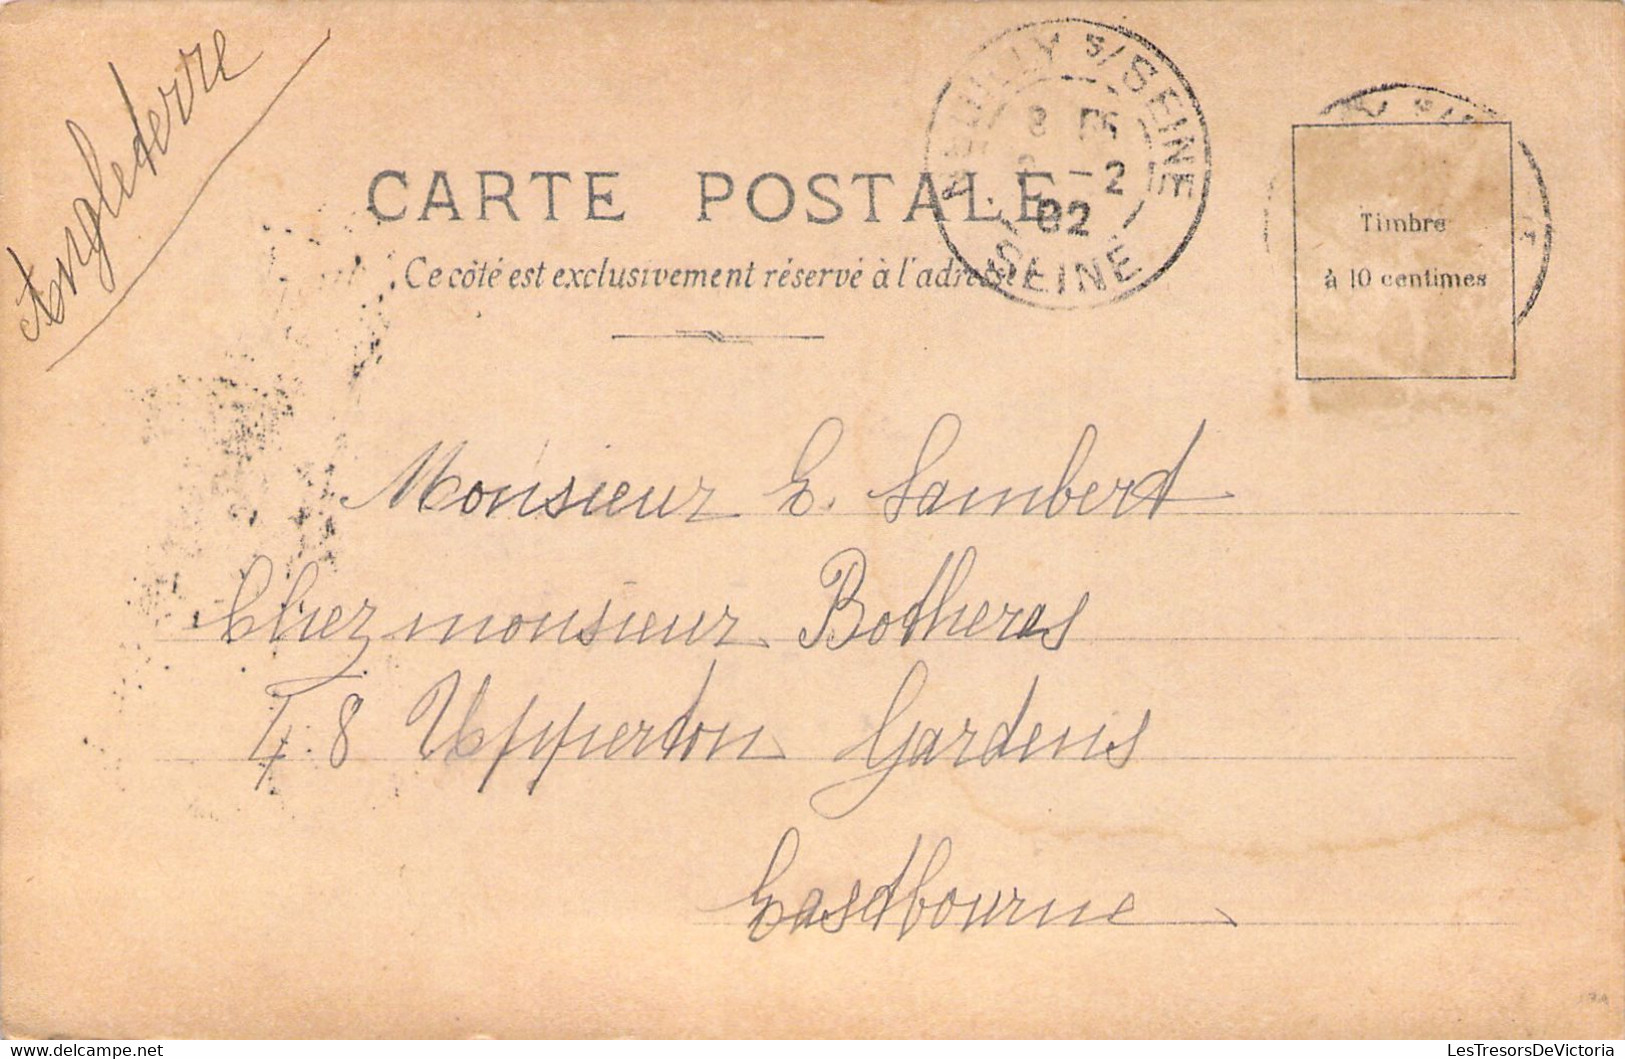 Angleterre
CARTE POSTALE
Ce côté est exclusivement réservé à l'adresse
NEUILLY S/SEINE
-2
02
SEINE
Timbre
à 10 centimes
Monsieur E. Lambert
Chez monsieur Botheras
48 Upperton Gardens
Eastbourne
LesTresorsDeVictoria